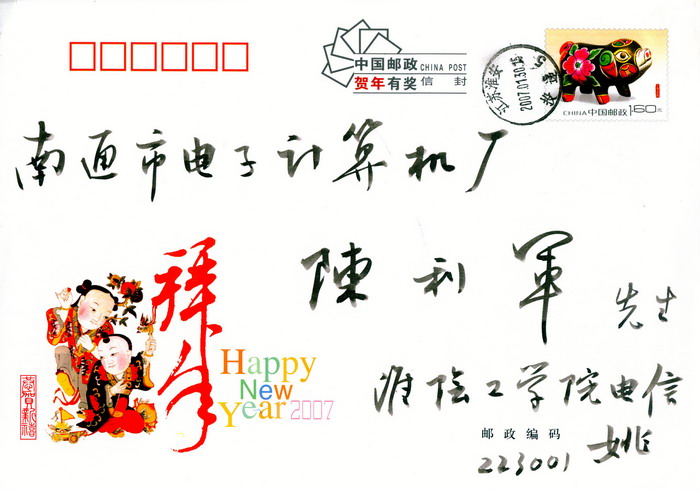 中国邮政 CHINA POST
贺年有奖 信封
江苏淮安
2007.01.30.16
CHINA中国邮政 1.60元
南通市电子计算机厂
陳利军 先生
拜年
Happy
New
Year 2007
恭賀新禧
淮陰工学院电信
邮政编码
姚
223001